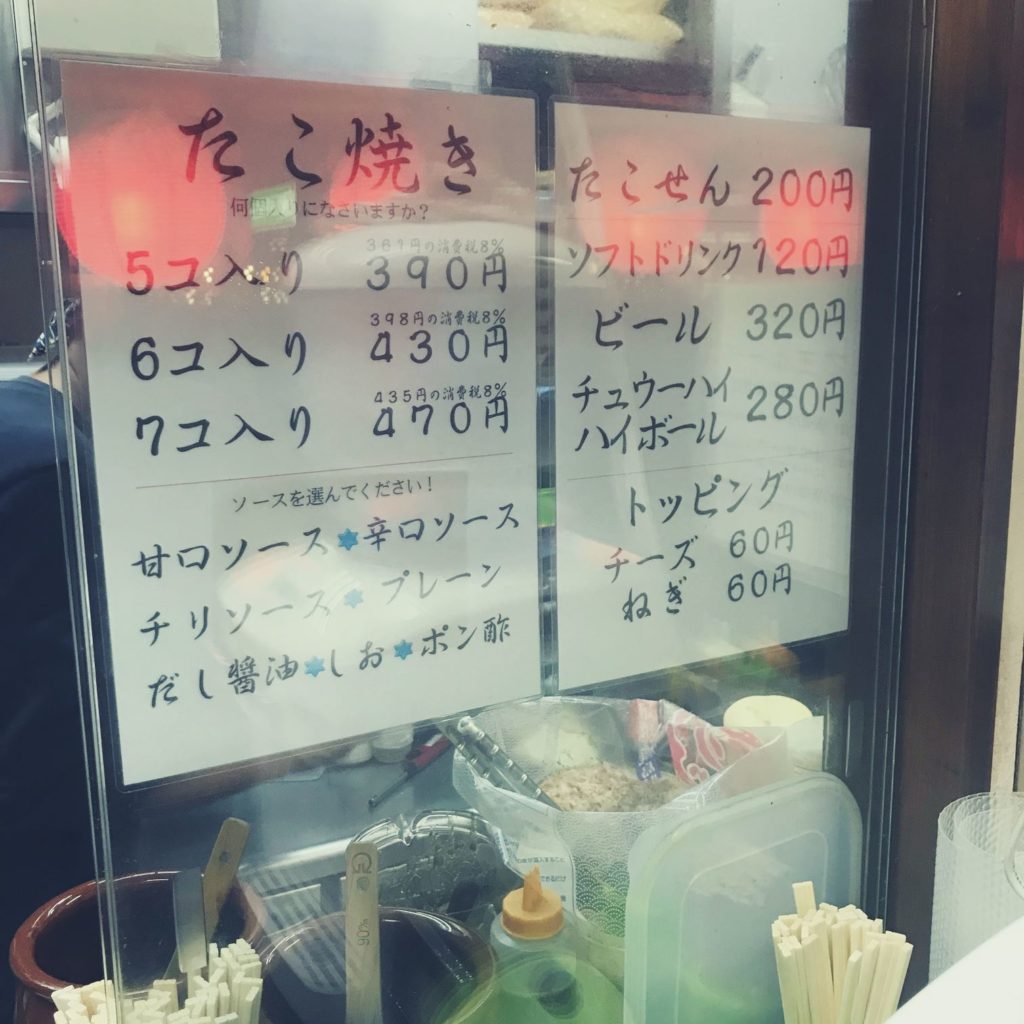 たこ焼き
何個入りになさいますか?
361円の消費税8%
5コ入り 390円
398円の消費税8%
6コ入り 430円
435円の消費税8%
7コ入り 470円
ソースを選んでください!
甘口ソース✶辛口ソース
チリソース✶プレーン
だし醤油✶しお✶ポン酢
たこせん 200円
ソフトドリンク 120円
ビール 320円
チュウーハイ
ハイボール 280円
トッピング
チーズ 60円
ねぎ 60円